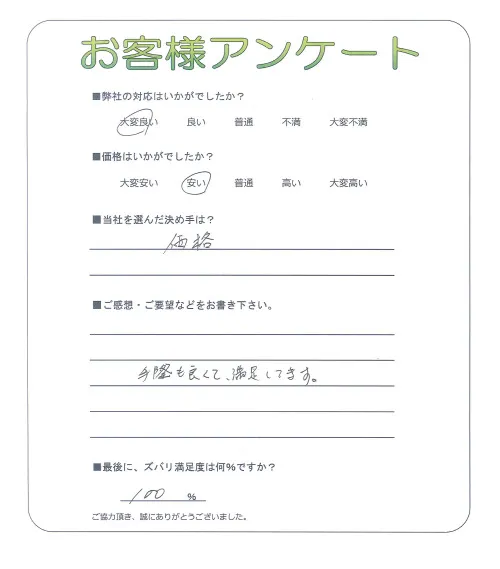 お客様アンケート
■弊社の対応はいかがでしたか？
大変良い 良い 普通 不満 大変不満
■価格はいかがでしたか？
大変安い 安い 普通 高い 大変高い
■当社を選んだ決め手は？
価格
■ご感想・ご要望などをお書き下さい。
手際も良くて、満足してます。
■最後に、ズバリ満足度は何％ですか？
100 ％
ご協力頂き、誠にありがとうございました。